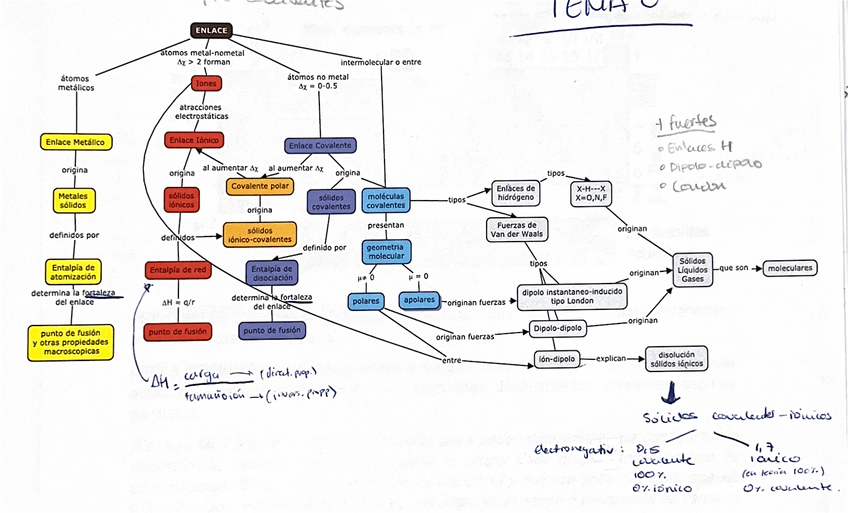 TEMA 6
ENLACE
átomos metal-nometal
Δχ > 2 forman
intermolecular o entre
átomos
metálicos
Iones
átomos no metal
Δχ = 0-0.5
atracciones
electrostáticas
+ fuertes
Enlaces H
Dipolo-dipolo
London
Enlace Metálico
Enlace Iónico
Enlace Covalente
origina
origina
al aumentar Δχ
al aumentar Δχ
origina
tipos
Metales
sólidos
sólidos
iónicos
Covalente polar
sólidos
covalentes
moléculas
covalentes
tipos
Enlaces de
hidrógeno
X-H---X
X=O,N,F
origina
presentan
Fuerzas de
Van der Waals
originan
definidos por
definidos
sólidos
iónico-covalentes
definido por
geometria
molecular
tipos
Entalpía de
atomización
Entalpía de red
Entalpía de
disociación
μ≠ 0
μ = 0
originan
Sólidos
Líquidos
Gases
que son
moleculares
determina la fortaleza
del enlace
ΔH = q/r
determina la fortaleza
del enlace
polares
apolares
originan fuerzas
dipolo instantaneo-inducido
tipo London
punto de fusión
y otras propiedades
macroscopicas
punto de fusión
punto de fusión
originan fuerzas
Dipolo-dipolo
originan
entre
Ión-dipolo
explican
disolución
sólidos iónicos
ΔH = carga → (direct. prop.)
tamaño ion → (invers. prop)
Sólidos covalentes-iónicos
electronegativ: 0,5
1,7
covalente
iónico
100%
(en teoría 100%)
0% iónico
0% covalente.